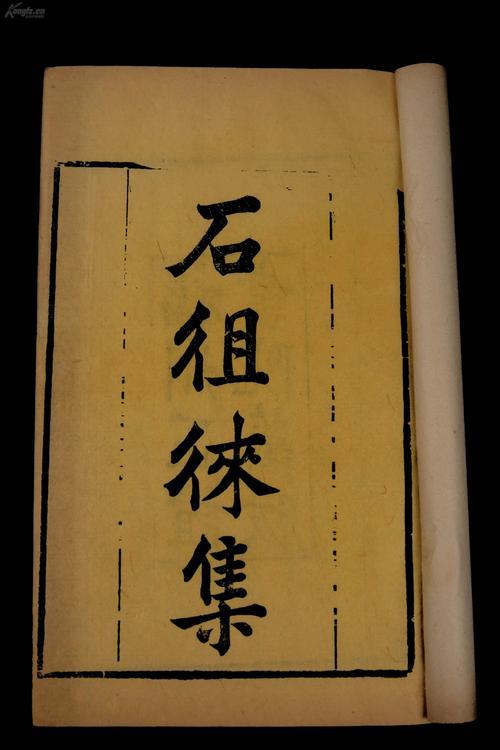 Kongfz.cn
石徂徠集